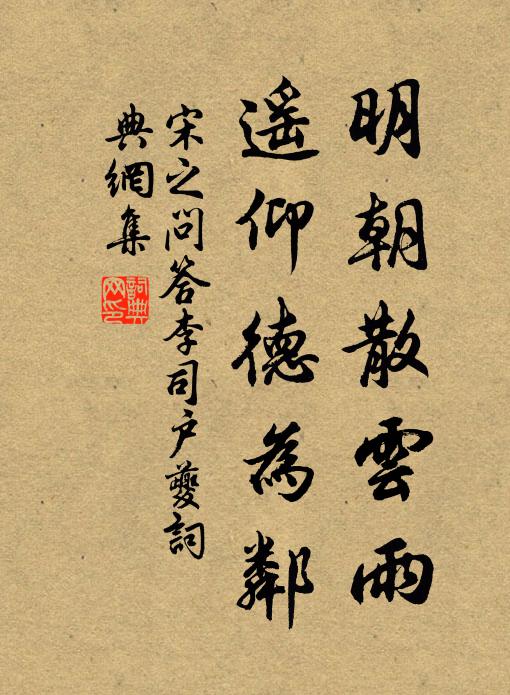 明朝散雲雨
遥仰德為鄰
宋之問答李司户夔詞
典網集
詞典網印